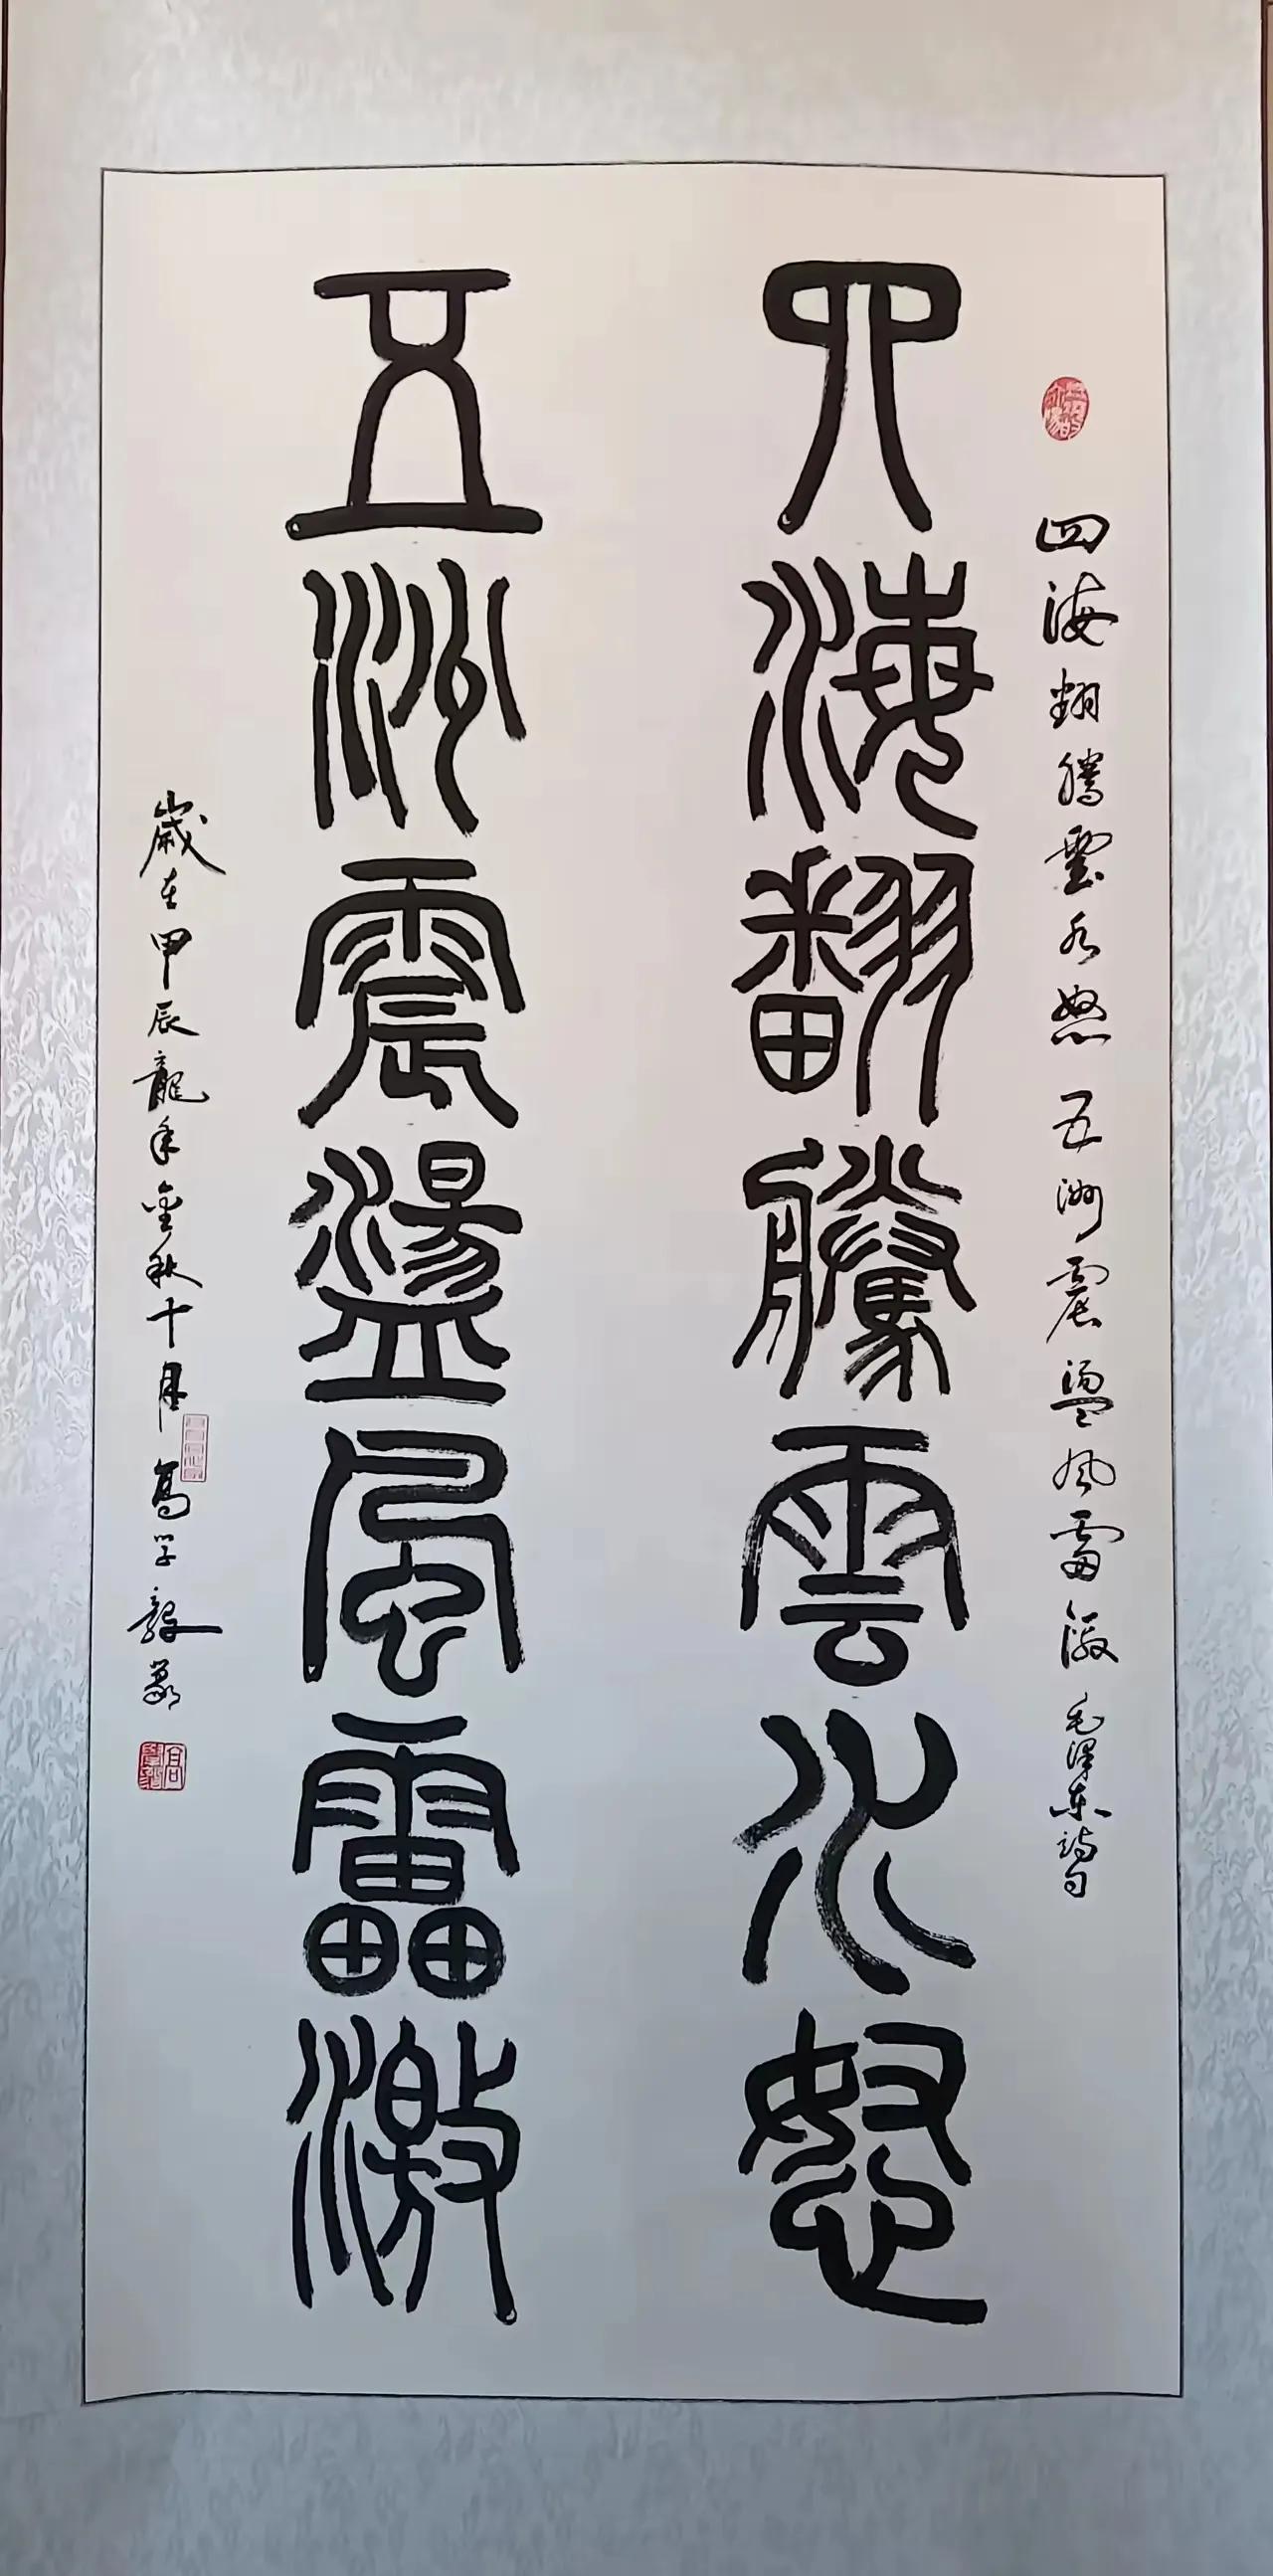 四海翻騰雲水怒 五洲震盪風雷激 毛澤東詩句
四海翻騰雲水怒
五洲震盪風雷激
歲在甲辰龍年金秋十月 高学毅篆